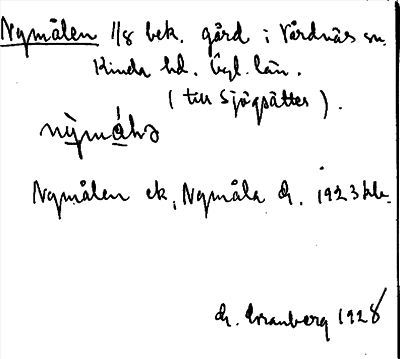 Nymålen 1/8 bek. gård i Vårdnäs sn.
Kinda hd. Ögl. län.
(till Sjögsätter).
Nymålen ek, Nymåla dr. 1923 kbr.
Granberg 1928